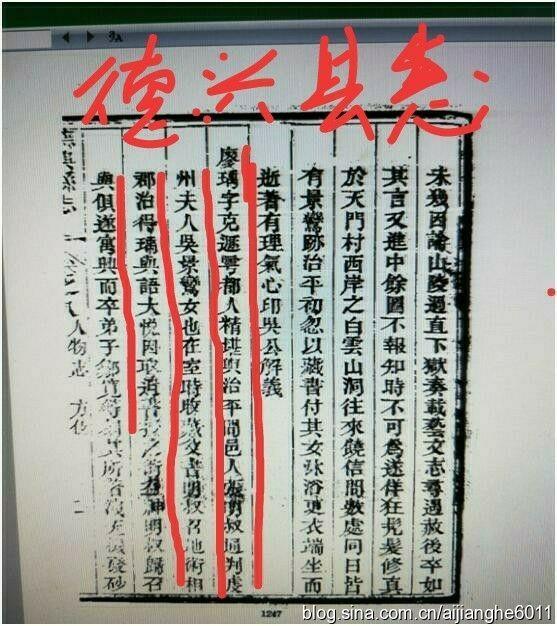 德兴县志
未幾因論山陵過直下獄奏載藝文志尋遇赦後卒如
其言又進中餘圖不報知時不可為遂佯狂髡髮修真
於天門村西岸之白雲山洞往來饒信間數處同日皆
有景鸞跡治平初忽以藏書付其女沐浴更衣端坐而
逝著有理氣心印吳公解義
廖瑀字克遜雩都人精堪輿治平間邑人張明叔通判虔
州夫人吳景鸞女也在室時收藏父書明叔召地術相
郡治得瑀與語大悅因明叔歸召
與俱遂寓興而卒弟子其所著發砂
興縣志 人物志 方伎 二
1247
blog.sina.com.cn/aijianghe6011